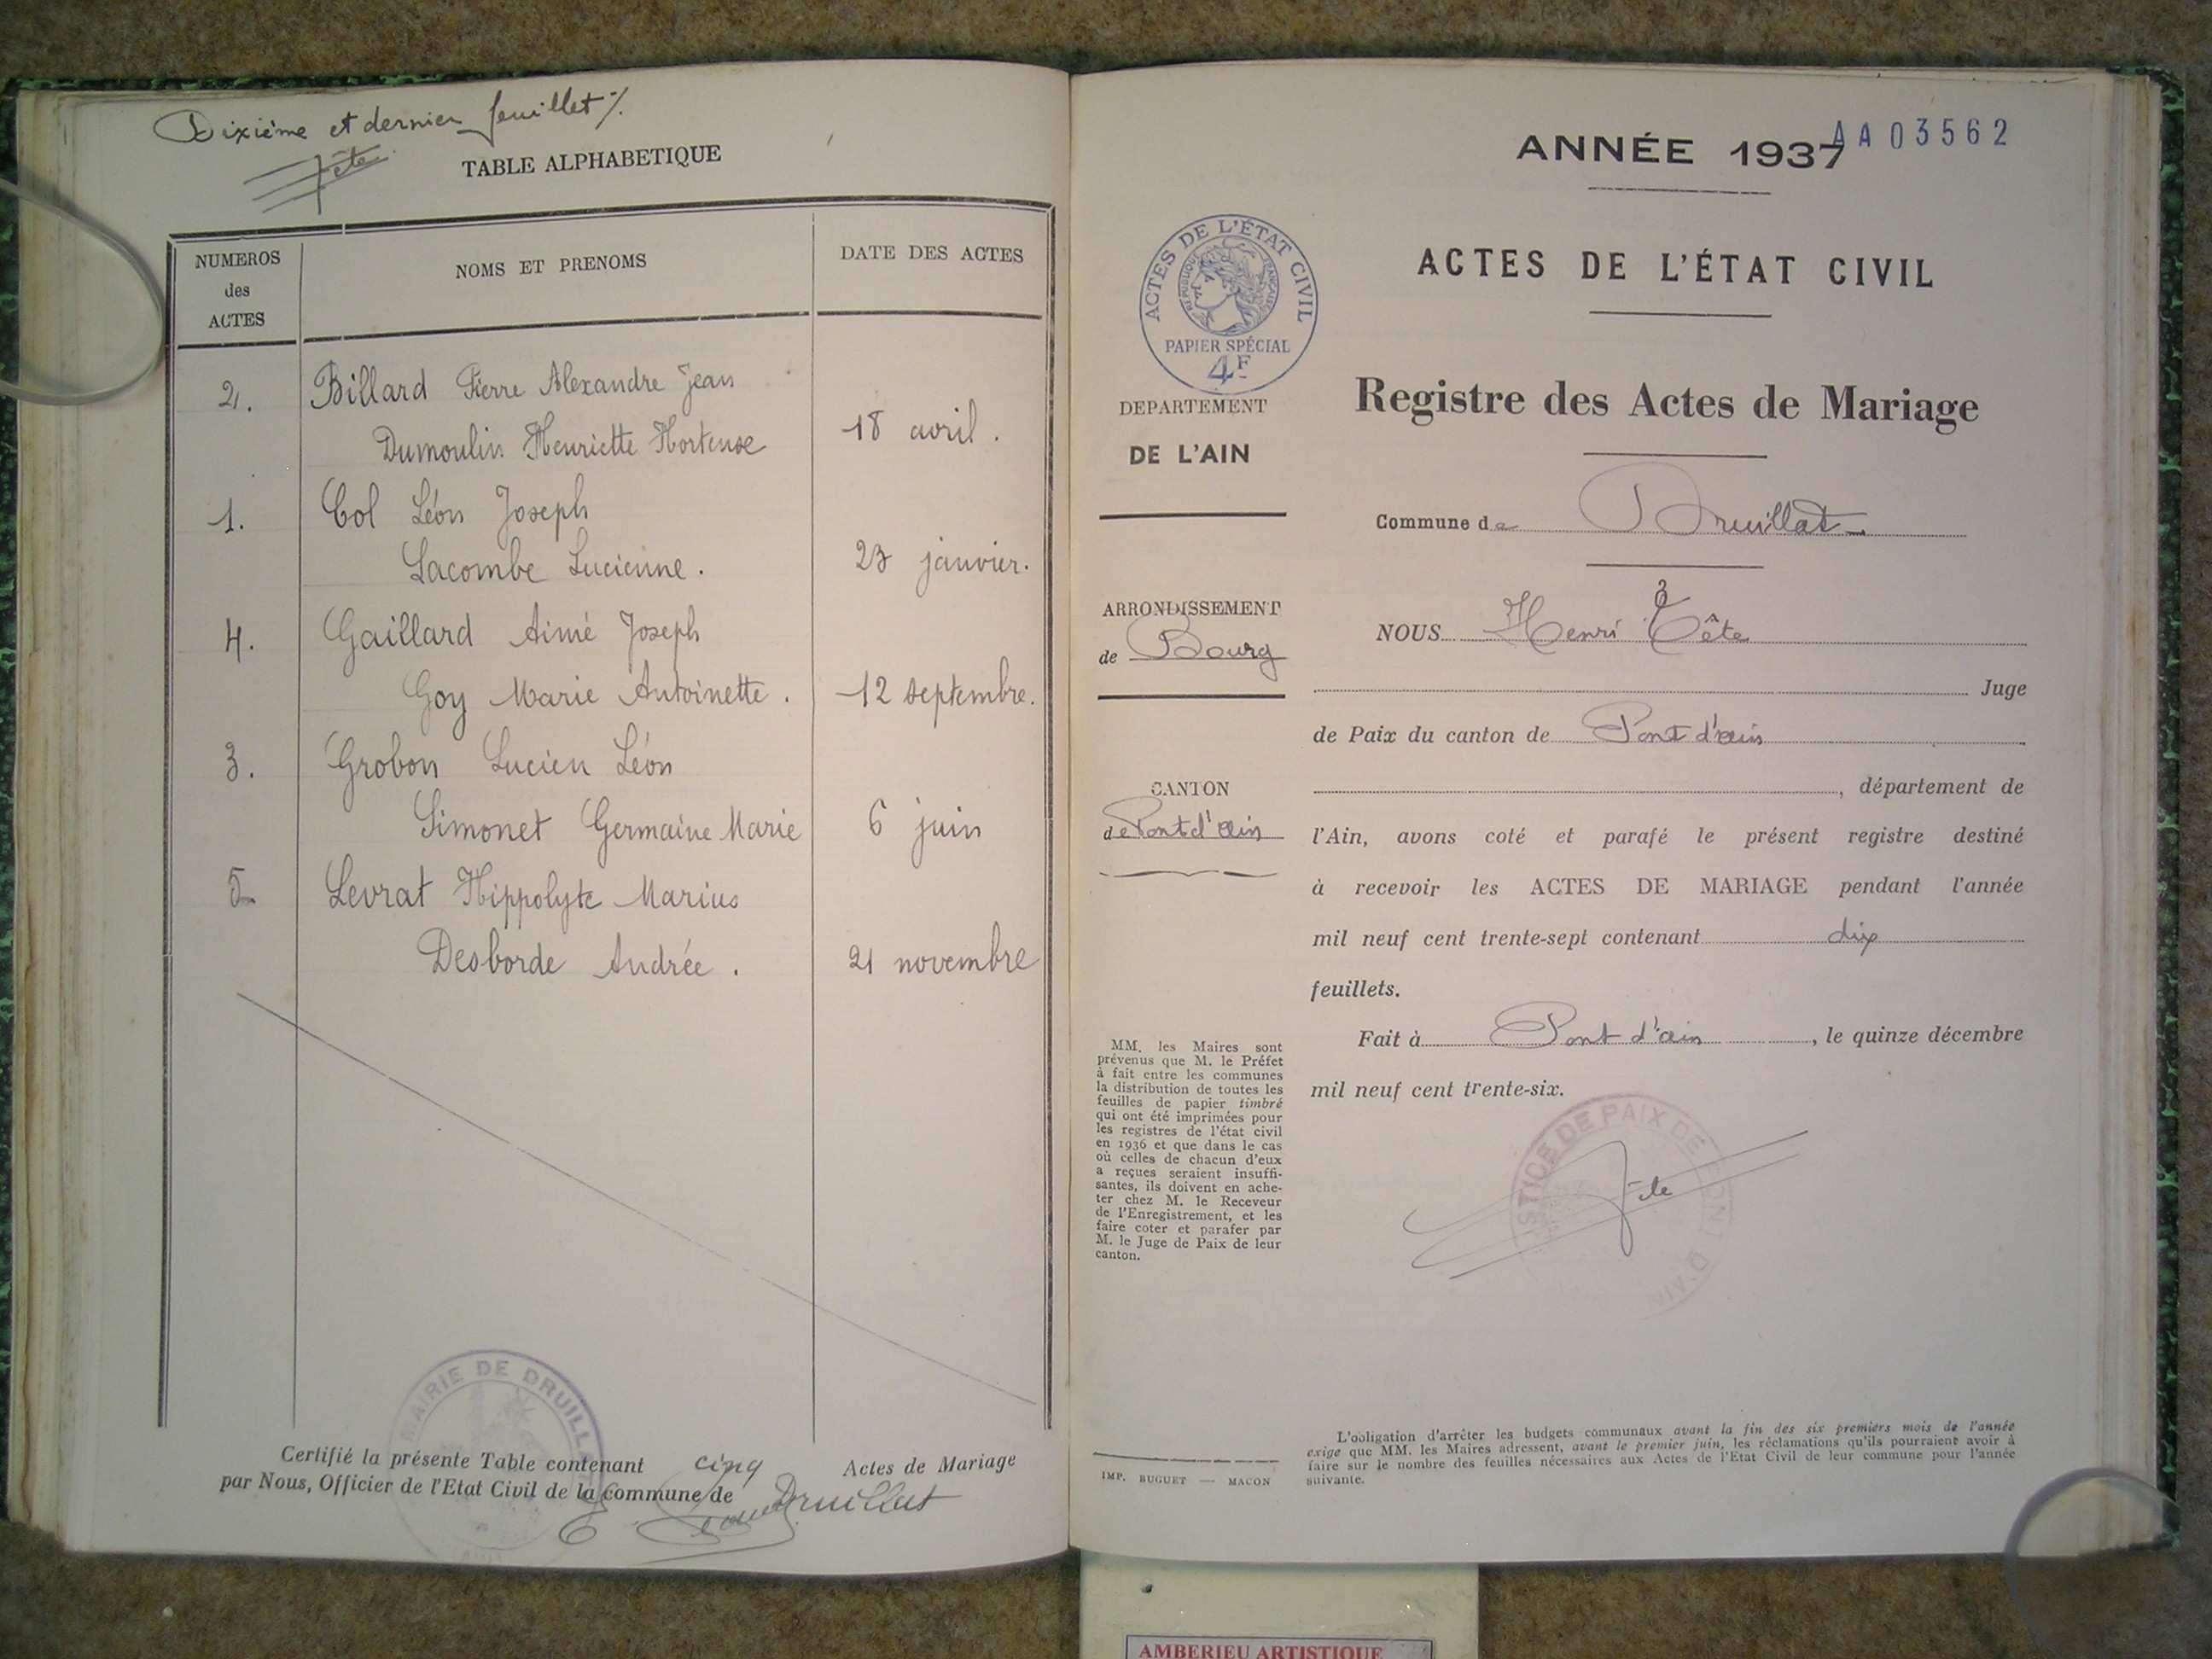 Dixième et dernier feuillet %
Tête
TABLE ALPHABETIQUE
NUMEROS
des
ACTES
NOMS ET PRENOMS
DATE DES ACTES
2. Billard Pierre Alexandre Jean
Dumoulin Henriette Hortense 18 avril.
1. Col Léon Joseph
Lacombe Lucienne. 23 janvier.
4. Gaillard Aimé Joseph
Goy Marie Antoinette. 12 septembre.
3. Grobon Lucien Léon
Simonet Germaine Marie 6 juin
5 Levrat Hippolyte Marius
Desborde Andrée. 21 novembre
MAIRIE DE DRUILLAT
Certifié la présente Table contenant cinq Actes de Mariage
par Nous, Officier de l'Etat Civil de la commune de Druillat
ANNÉE 1937
AA03562
ACTES DE L'ÉTAT CIVIL
ACTES DE L'ÉTAT CIVIL
RÉPUBLIQUE FRANÇAISE
PAPIER SPÉCIAL
4F
DEPARTEMENT
DE L'AIN
ARRONDISSEMENT
de Bourg
CANTON
de Pont d'ain
MM. les Maires sont
prévenus que M. le Préfet
à fait entre les communes
la distribution de toutes les
feuilles de papier timbré
qui ont été imprimées pour
les registres de l'état civil
en 1936 et que dans le cas
où celles de chacun d'eux
a reçues seraient insuffi-
santes, ils doivent en ache-
ter chez M. le Receveur
de l'Enregistrement, et les
faire coter et parafer par
M. le Juge de Paix de leur
canton.
IMP. BUGUET — MACON
Registre des Actes de Mariage
Commune de Druillat
NOUS Henri Tête
Juge
de Paix du canton de Pont d'ain
, département de
l'Ain, avons coté et parafé le présent registre destiné
à recevoir les ACTES DE MARIAGE pendant l'année
mil neuf cent trente-sept contenant dix
feuillets.
Fait à Pont d'ain, le quinze décembre
mil neuf cent trente-six.
JUSTICE DE PAIX DE PONT D'AIN
Tête
L'obligation d'arrêter les budgets communaux avant la fin des six premiers mois de l'année
exige que MM. les Maires adressent, avant le premier juin, les réclamations qu'ils pourraient avoir à
faire sur le nombre des feuilles nécessaires aux Actes de l'Etat Civil de leur commune pour l'année
suivante.
AMBERIEU ARTISTIQUE